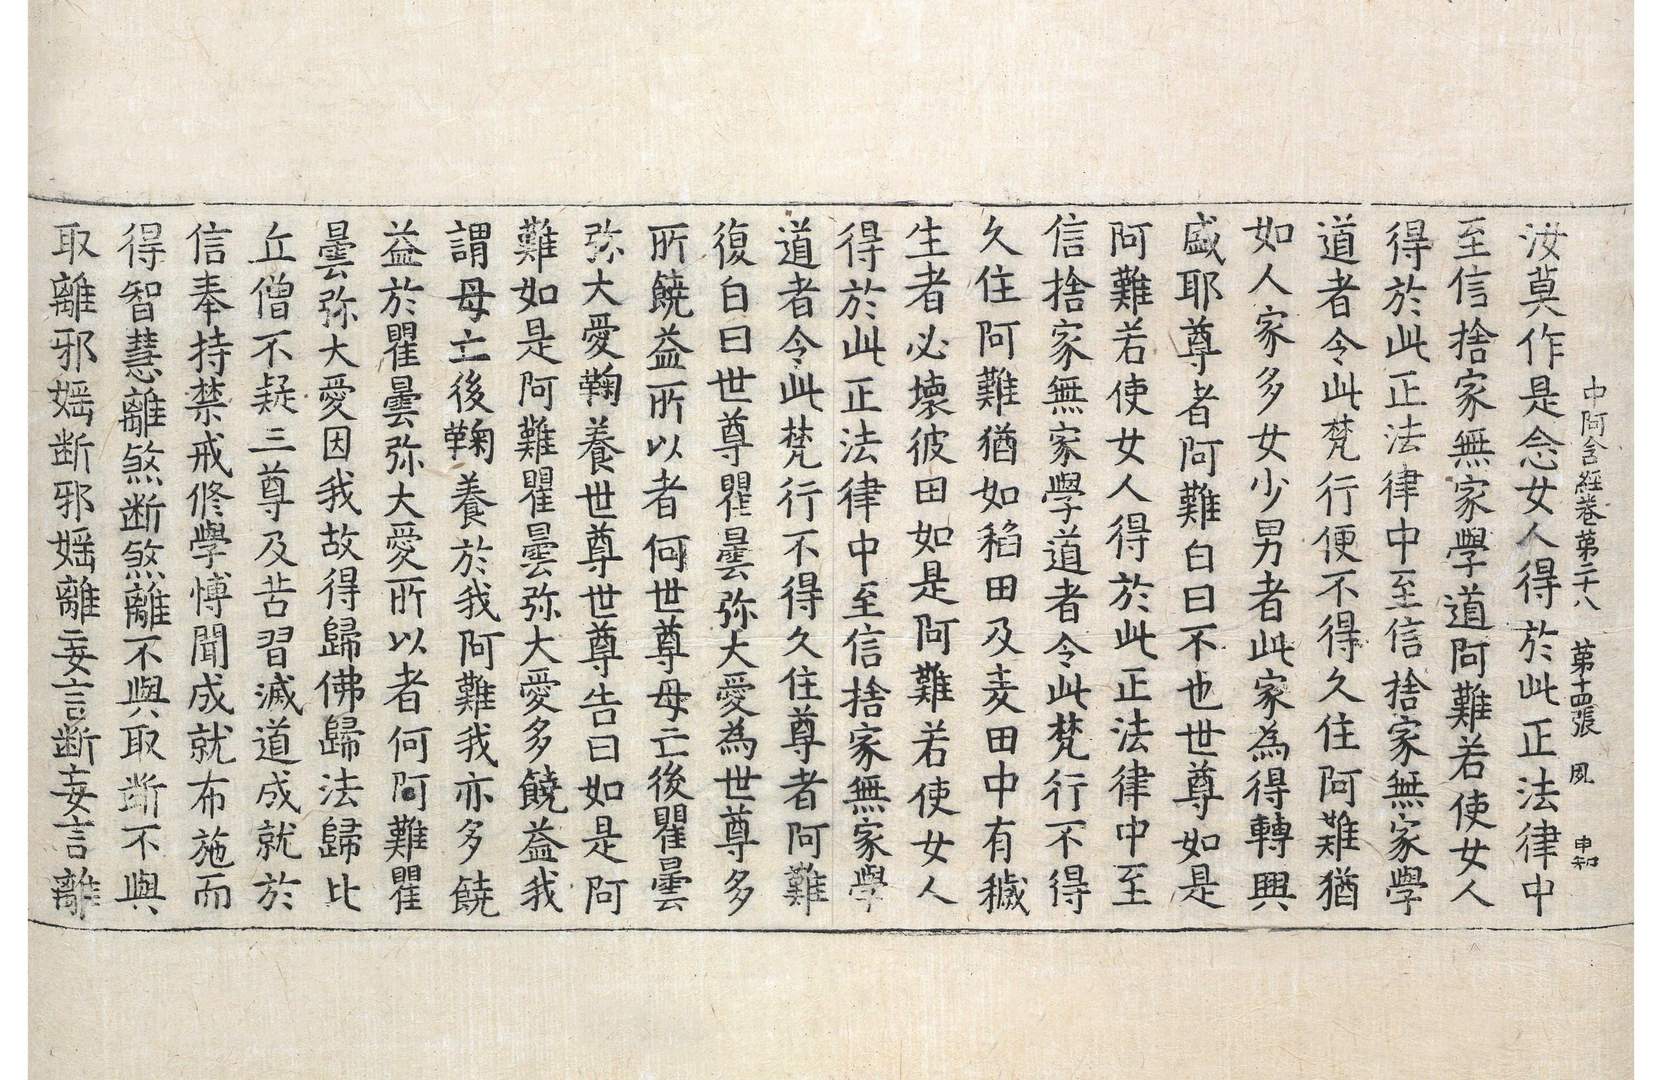 中阿含經卷第二十八　第十四張　風　申知
汝莫作是念女人得於此正法律中
至信捨家無家學道阿難若使女人
得於此正法律中至信捨家無家學
道者令此梵行便不得久住阿難猶
如人家多女少男者此家為得轉興
盛耶尊者阿難白曰不也世尊如是
阿難若使女人得於此正法律中至
信捨家無家學道者令此梵行不得
久住阿難猶如稻田及麦田中有穢
生者必壞彼田如是阿難若使女人
得於此正法律中至信捨家無家學
道者令此梵行不得久住尊者阿難
復白曰世尊瞿曇弥大愛為世尊多
所饒益所以者何世尊母亡後瞿曇
弥大愛鞠養世尊世尊告曰如是阿
難如是阿難瞿曇弥大愛多饒益我
謂母亡後鞠養於我阿難我亦多饒
益於瞿曇弥大愛所以者何阿難瞿
曇弥大愛因我故得歸佛歸法歸比
丘僧不疑三尊及苦習滅道成就於
信奉持禁戒修學博聞成就布施而
得智慧離煞断煞離不與取断不與
取離邪婬断邪婬離妄言断妄言離